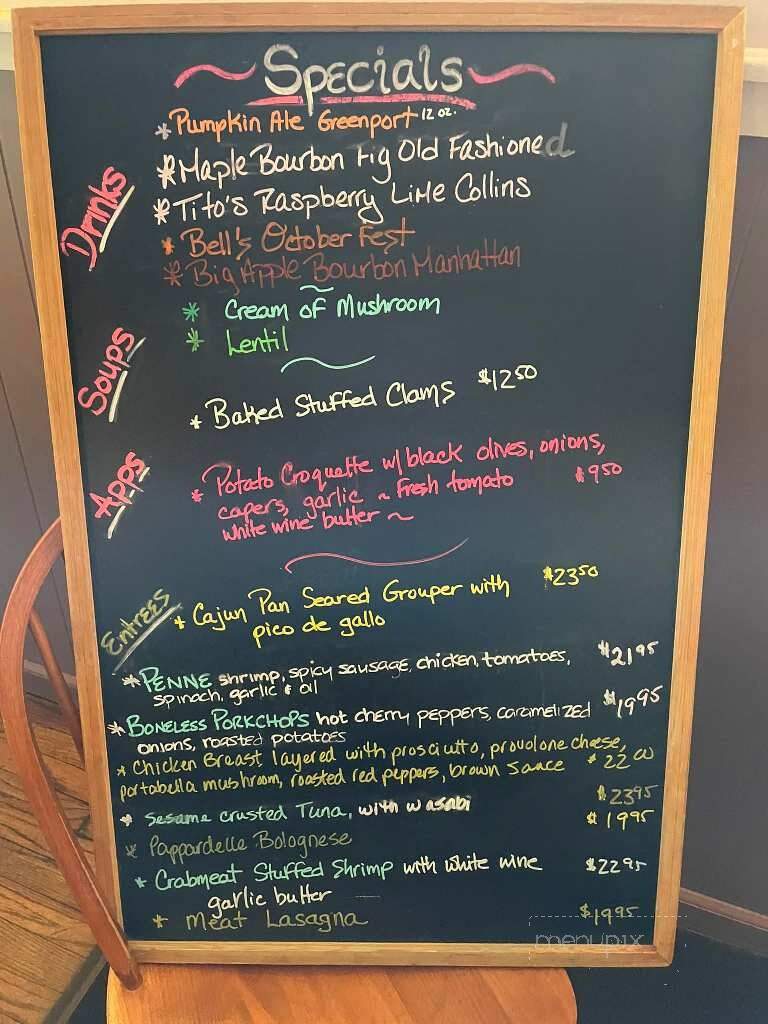 Specials
Drinks
* Pumpkin Ale Greenport 12 oz.
* Maple Bourbon Fig Old Fashioned
* Tito's Raspberry Lime Collins
* Bell's October Fest
* Big Apple Bourbon Manhattan
Soups
* Cream of Mushroom
* Lentil
Apps
* Baked Stuffed Clams $12 50
* Potato Croquette w/ black olives, onions,
capers, garlic ~ fresh tomato $9 50
white wine butter ~
Entrees
* Cajun Pan Seared Grouper with $23 50
pico de gallo
* PENNE shrimp, spicy sausage, chicken, tomatoes, $21 95
spinach, garlic & oil
* BONELESS PORKCHOPS hot cherry peppers, caramelized $19 95
onions, roasted potatoes
* Chicken Breast layered with prosciutto, provolone cheese,
portabella mushroom, roasted red peppers, brown sauce $22 00
* Sesame crusted Tuna, with wasabi $23 95
* Pappardelle Bolognese $19 95
* Crabmeat Stuffed Shrimp with white wine $22 95
garlic butter
* Meat Lasagna $19 95
menupix